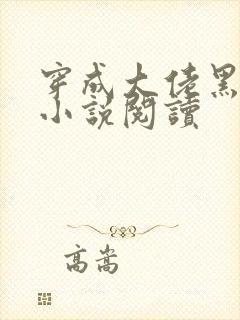 穿成大佬黑
小說閱讀
高嵩